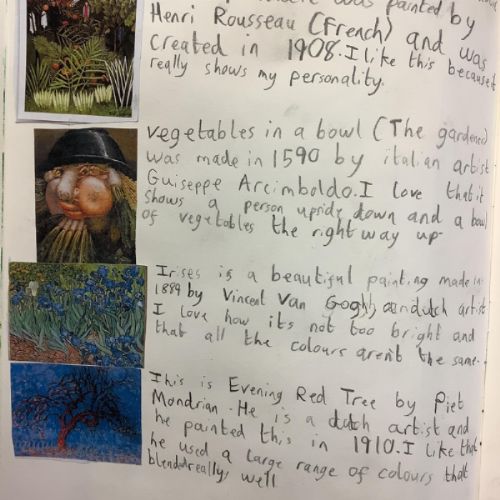 was painted by
Henri Rousseau (French) and was
Created in 1908. I like this because it
really shows my personality.
vegetables in a bowl (The gardener)
was made in 1590 by italian artist
Guiseppe Arcimboldo. I love that it
shows a person upside down and a bowl
of vegetables the right way up.
Irises is a beautiful painting made in
1889 by Vincent Van Gogh, a dutch artist
I love how its not too bright and
that all the colours arent the same.
This is Evening Red Tree by Piet
Mondrian. He is a dutch artist and
he painted this in 1910. I like that
he used a large range of colours that
blended really well